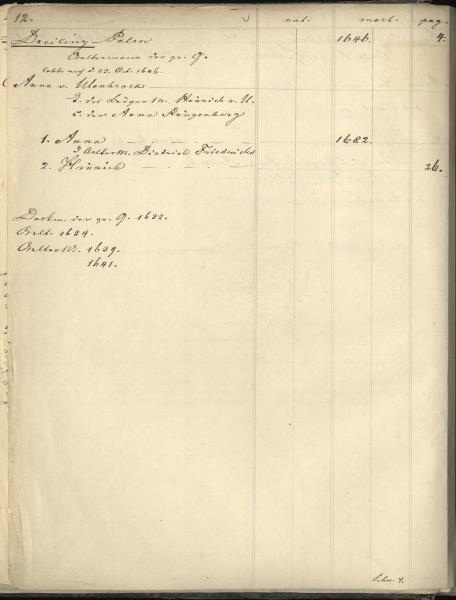 12. nat. mort. pag.
Dreiling - Palm 1646. 4.
Aeltermann der gr. G.
lebte noch d. 23. Oct. 1646.
Anna v. Ulenbrock
T. des Bürgerm. Hinrich v. U.
u. der Anna Ringenberg
1. Anna 1682.
Aelterm. Dietrich Friedrichs
2. Hinrich 26.
Dockm. der gr. G. 1622.
Aelt. 1624.
Aelterm. 1639.
1641.